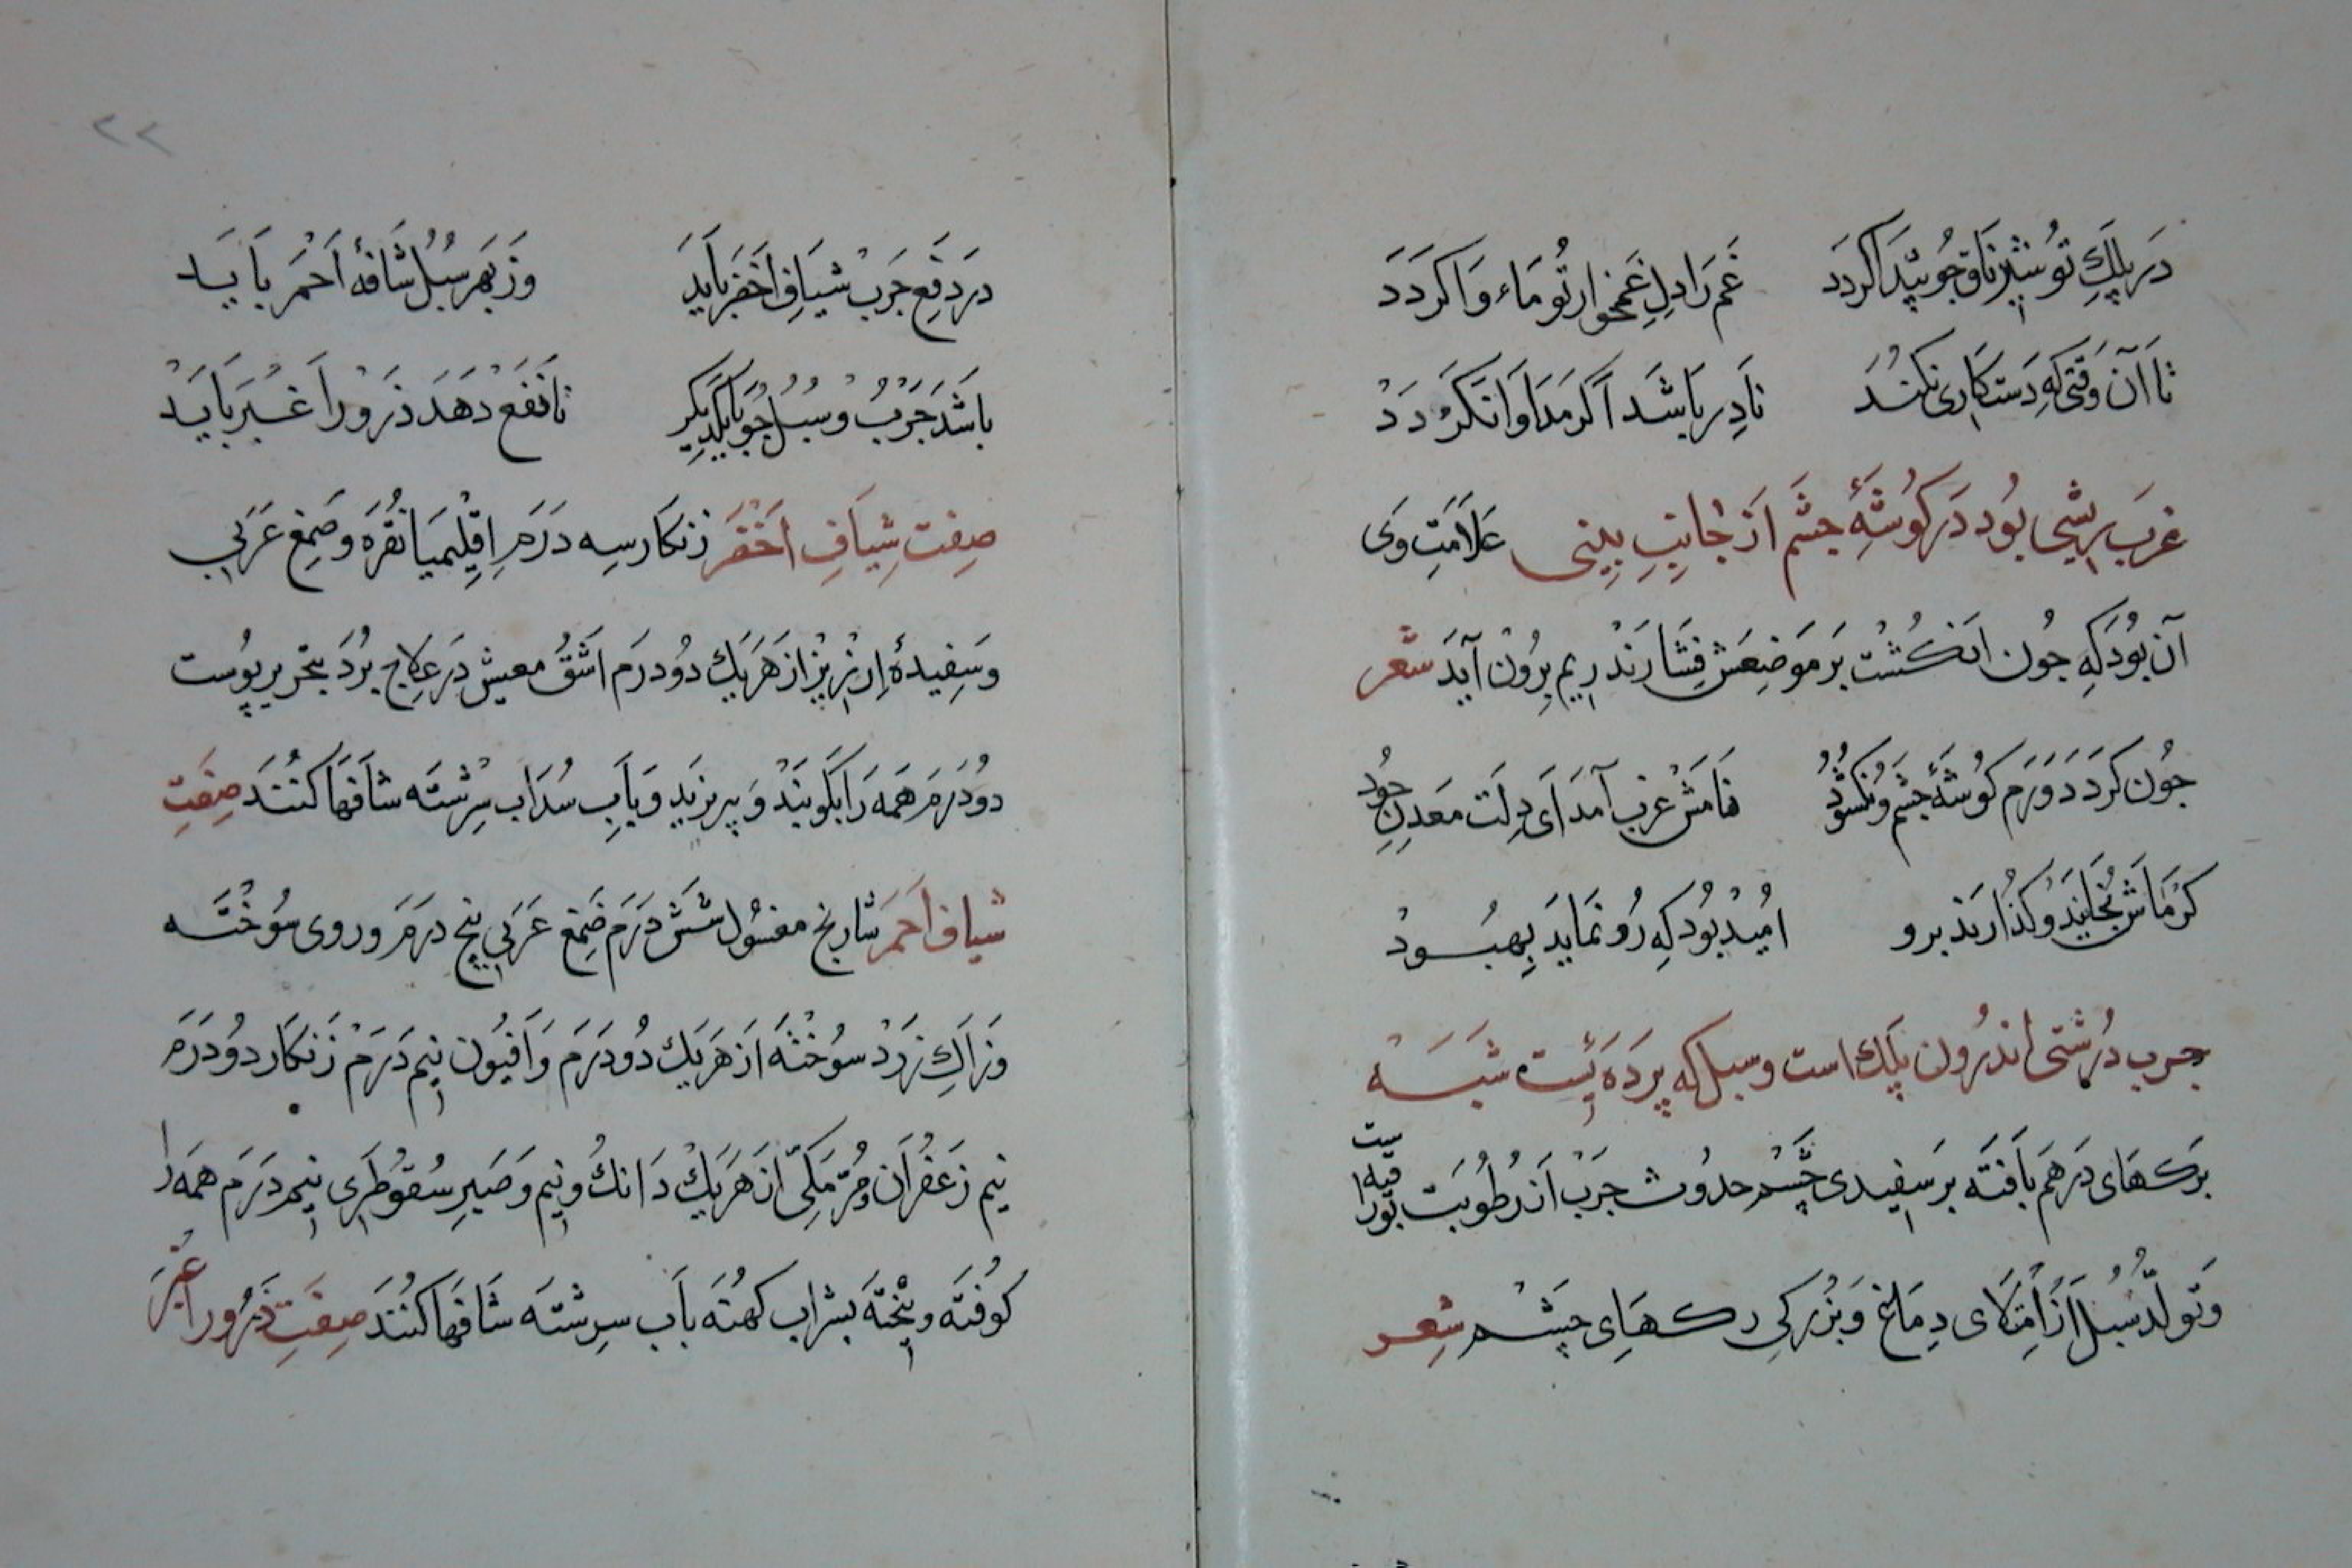 در پلك تو شيرناق جو پيدا كردد غم را دل غمخوار تو ماء وا كردد
تا آن وقتى كه دستكارى نكند نادر باشد اكر مداوا نكردد
غرب ريشى بود در كوشهٔ چشم از جانب بينى علامت وى
آن بود كه جون انكشت بر موضعش فشارند ريم برون آيد شعر
جون كردد ورم كوشهٔ چشم و نكشود نامش غرب آمد اى دلت معدن جود
كرماش بخايند و كذارند برو اميد بود كه رو نمايد بهبود
جرب درشتى اندرون پلك است و سبل كه پرده ئيست شبه
بركهاى درهم بافته بر سفيدى چشم حدوث جرب از رطوبت بورقيه است
و تولد سبل از امتلاى دماغ و بزركى ركهاى چشم شعر
٢٢
در دفع جرب شياف اخضر بايد وز بهر سبل شافهٔ احمر بايد
باشد جرب و سبل جو با يكديكر تا نفع دهد ذرور اغبر بايد
صفت شياف اخضر زنكار سه درم اقليميا نقره و صمغ عربى
و سفيدهٔ ارزيز از هر يك دو درم اشق
دو درم همه را بكوبند و ببيزند و بآب سداب سرشته شافها كنند صفت
شياف احمر شاربخ مغسول شش درم صمغ عربى پنج درم و روى سوخته
و زاك زرد سوخته از هر يك دو درم و افيون نيم درم زنكار دو درم
نيم زعفران و مرّ مكّى از هر يك دانك و نيم و صبر سقوطرى نيم درم همه را
كوفته و بيخته بشراب كهنه بآب سرشته شافها كنند صفت ذرور اغبر